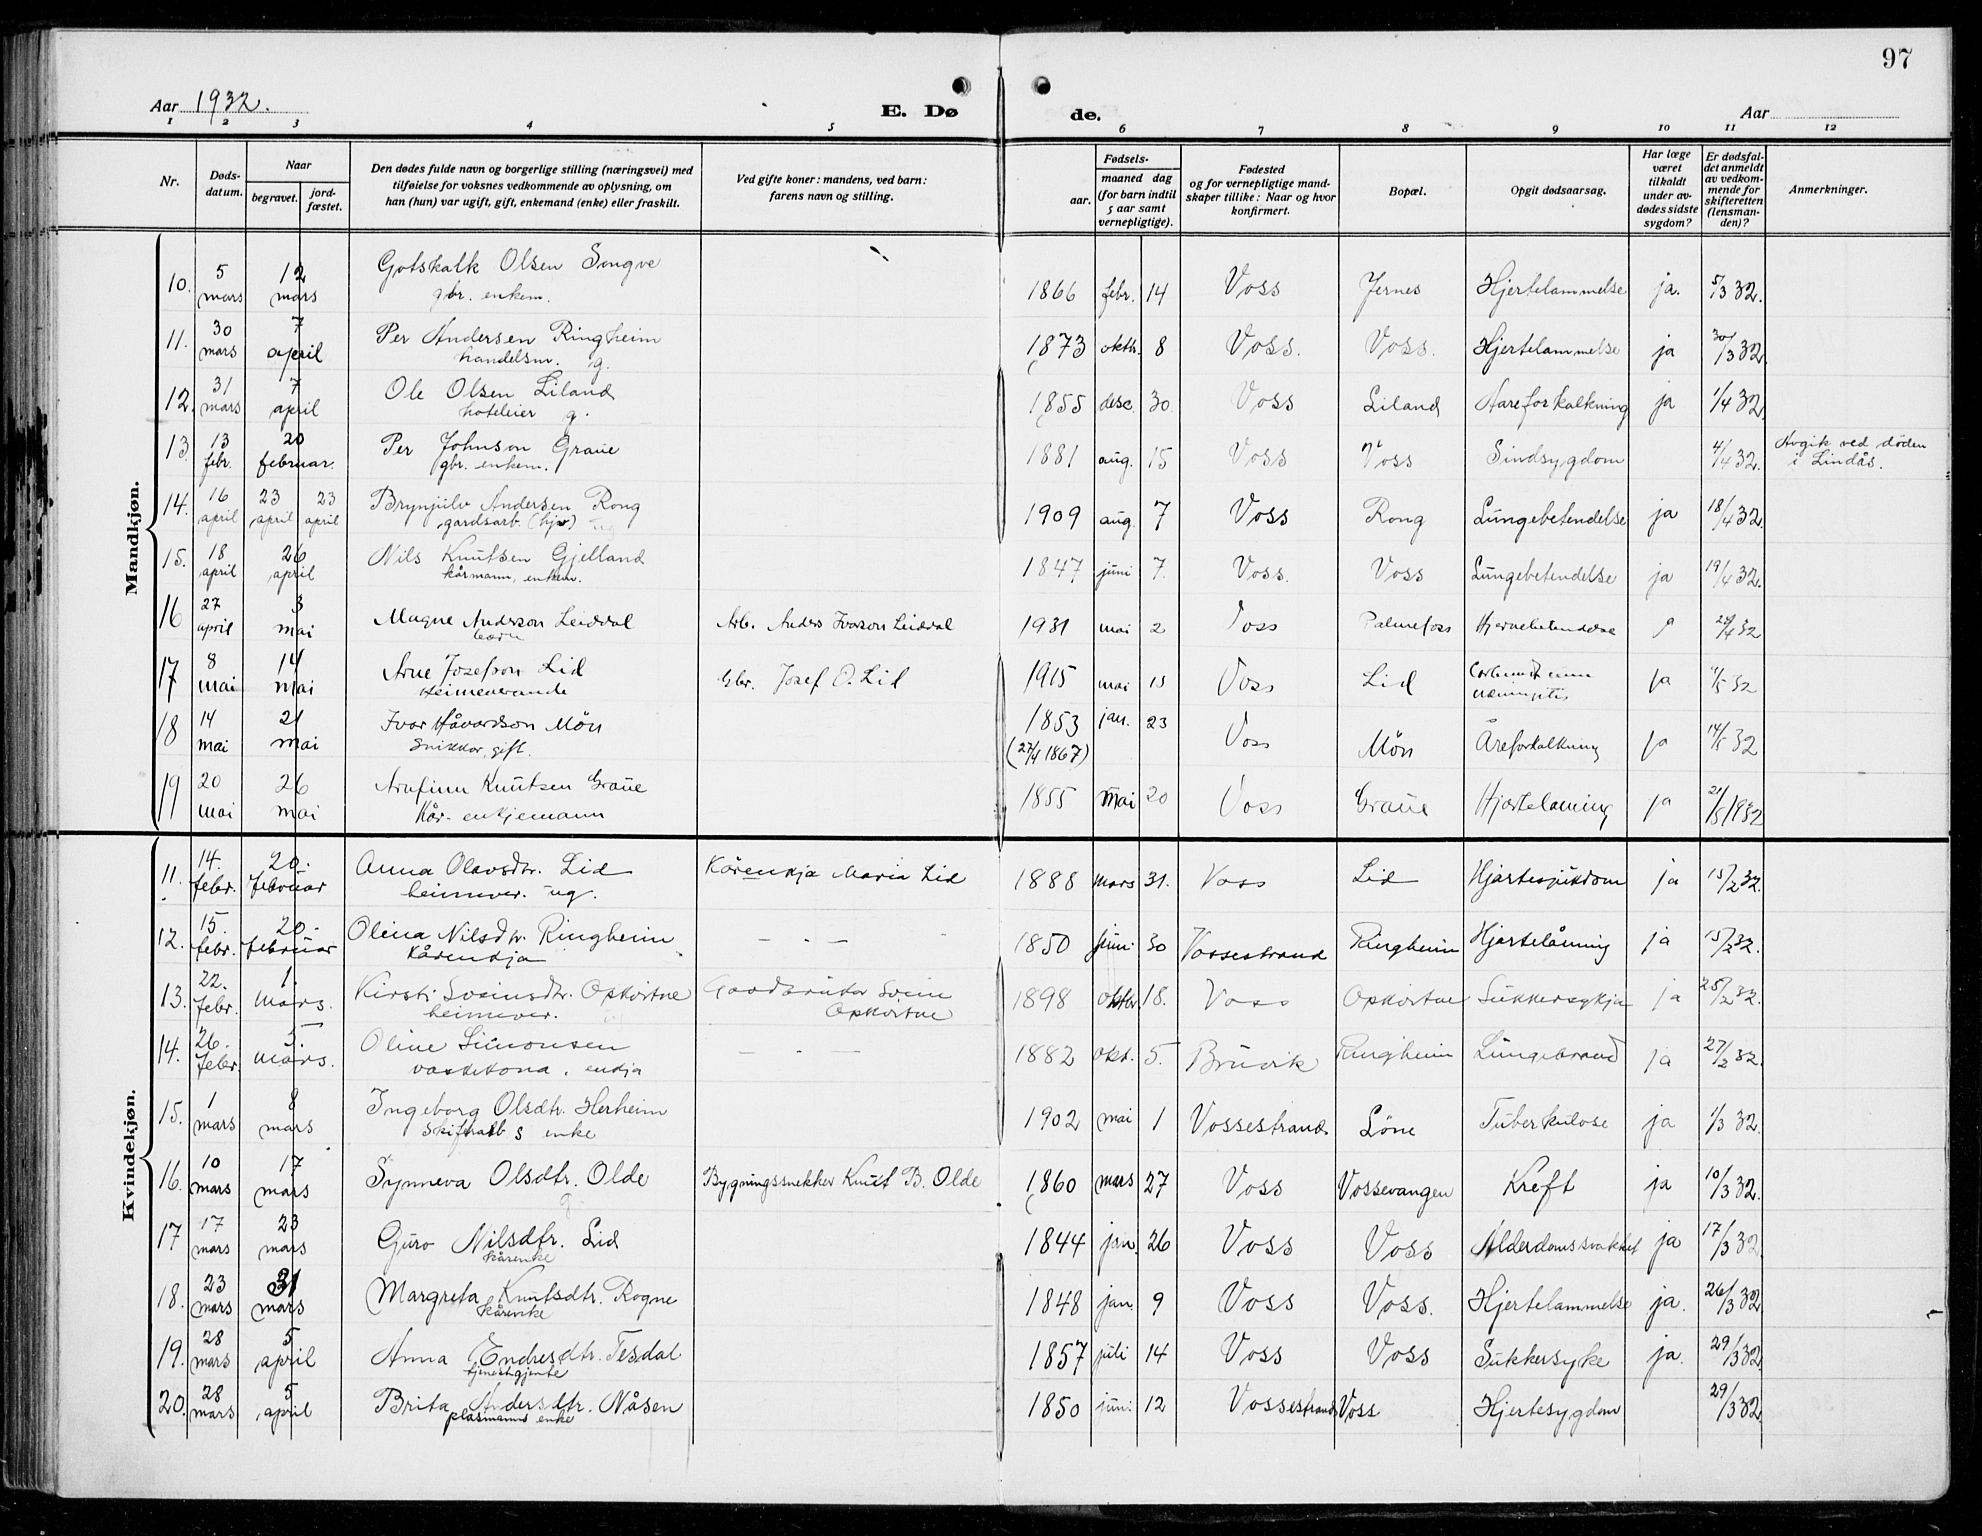 97
Aar 1932.
E. Døde.
Aar
1 2 3 4 5 6 7 8 9 10 11 12
Nr.
Døds-datum.
Naar
begravet.
jord-fæstet.
Den dødes fulde navn og borgerlige stilling (næringsvei) med
tilføielse for voksnes vedkommende av oplysning, om
han (hun) var ugift, gift, enkemand (enke) eller fraskilt.
Ved gifte koner: mandens, ved barn:
farens navn og stilling.
Fødsels-
aar.
maaned dag
(for barn indtil
5 aar samt
vernepligtige).
Fødested
og for vernepligtige mand-
skaper tillike: Naar og hvor
konfirmert.
Bopæl.
Opgit dødsaarsag.
Har læge
været
tilkaldt
under av-
dødes sidste
sygdom?
Er dødsfal-
det anmeldt
av vedkom-
mende for
skifteretten
(lensman-
den)?
Anmerkninger.
Mandkjøn.
10. 5 mars 12 mars Gotskalk Olsen Songve gbr. enkem. 1866 febr. 14 Voss Jernes Hjertelammelse ja. 5/3 32.
11. 30 mars 7 april Per Andersen Ringheim handelsm. g. 1873 oktb. 8 Voss. Voss. Hjertelammelse ja 30/3 32.
12. 31 mars 7 april Ole Olsen Liland hoteleier g. 1855 desc. 30. Voss Liland Aareforkalkning ja 1/4 32.
13. 13 febr. 20 februar. Per Johnson Graue gbr. enkem. 1881 aug. 15 Voss Voss Sindsygdom 4/4 32. Avgik ved døden i Lindås.
14. 16 april 23 april 23 april Brynjulv Andersen Rong gardsarb. (hjv) ug 1909 aug. 7 Voss Rong Lungebetendelse ja 18/4 32.
15. 18 april 26 april Nils Knutsen Gjelland kårmann, enkem. 1847 juni 7. Voss. Voss Lungebetendelse ja 19/4 32.
16 27 april 3 mai Magne Anderson Leiddal barn Arb. Anders Ivarson Leiddal 1931 mai 2 Voss Palmefoss Hjernebetendelse 28/4 32
17 8 mai 14 mai Arne Josefson Lid heimeverande Gbr. Josef O. Lid 1915 mai 15 Voss Lid ja 32
18 14 mai 21 mai Ivar Håvardson Mön Snikkar, gift. 1853 (27/4 1867) jan. 23 Voss Mön Åreforkalkning ja 14/5 32
19 20 mai 26 mai Arnfinn Knutsen Graue Kår- enkjemann 1855 mai 20 Voss Graue Hjartelaming ja 21/5 1932
Kvindekjøn.
11. 14. febr. 20. februar Anna Olavsdtr. Lid heimever. ug. Kårenkja Maria Lid 1888 mars 31. Voss Lid Hjartesjukdom ja 15/2 32.
12. 15. febr. 20. februar Olina Nilsdtr. Ringheim Kårenkja - - - 1850 juni 30 Vossestrand Ringheim Hjartelåming ja 15/2 32.
13. 22. febr. 1. mars. Kirsti Sveinsdtr. Opkvitne heimever. ug Gardbrukar Svein Opkvitne 1898 oktbr. 18. Voss Opkvitne Sukkersykja ja 25/2 32.
14. 26. febr. 5. mars. Oline Simonsen vaskekona, enkja - - - 1882 okt. 5. Bruvik Ringheim Lungebrand ja 27/2 32.
15. 1 mars 8 mars Ingeborg Olsdtr. Herheim enke 1902 mai 1 Vossestrand Löne Tuberkulose ja 1/3 32.
16. 10 mars 17 mars Synneva Olsdtr. Olde g. Bygningssnekker Knut B. Olde 1860 mars 27 Voss Vossevangen Kreft ja 10/3 32.
17 17 mars 23 mars Guro Nilsdtr. Lid kårenke 1844 jan. 26 Voss Voss Alderdomssvakhet ja 17/3 32.
18. 23 mars 31 mars Margreta Knutsdtr. Rogne kårenke 1848 jan. 9 Voss Voss. Hjertelammelse ja. 26/3 32
19. 28 mars 5 april Anna Endresdtr. Tesdal tjenestgjente 1857 juli 14 Voss Voss Sukkersyke ja. 29/3 32
20. 28 mars 5 april Brita Andersdtr. Nåsen plasmanns enke 1850 juni 12 Vossestrand Voss Hjertesygdom 29/3 32